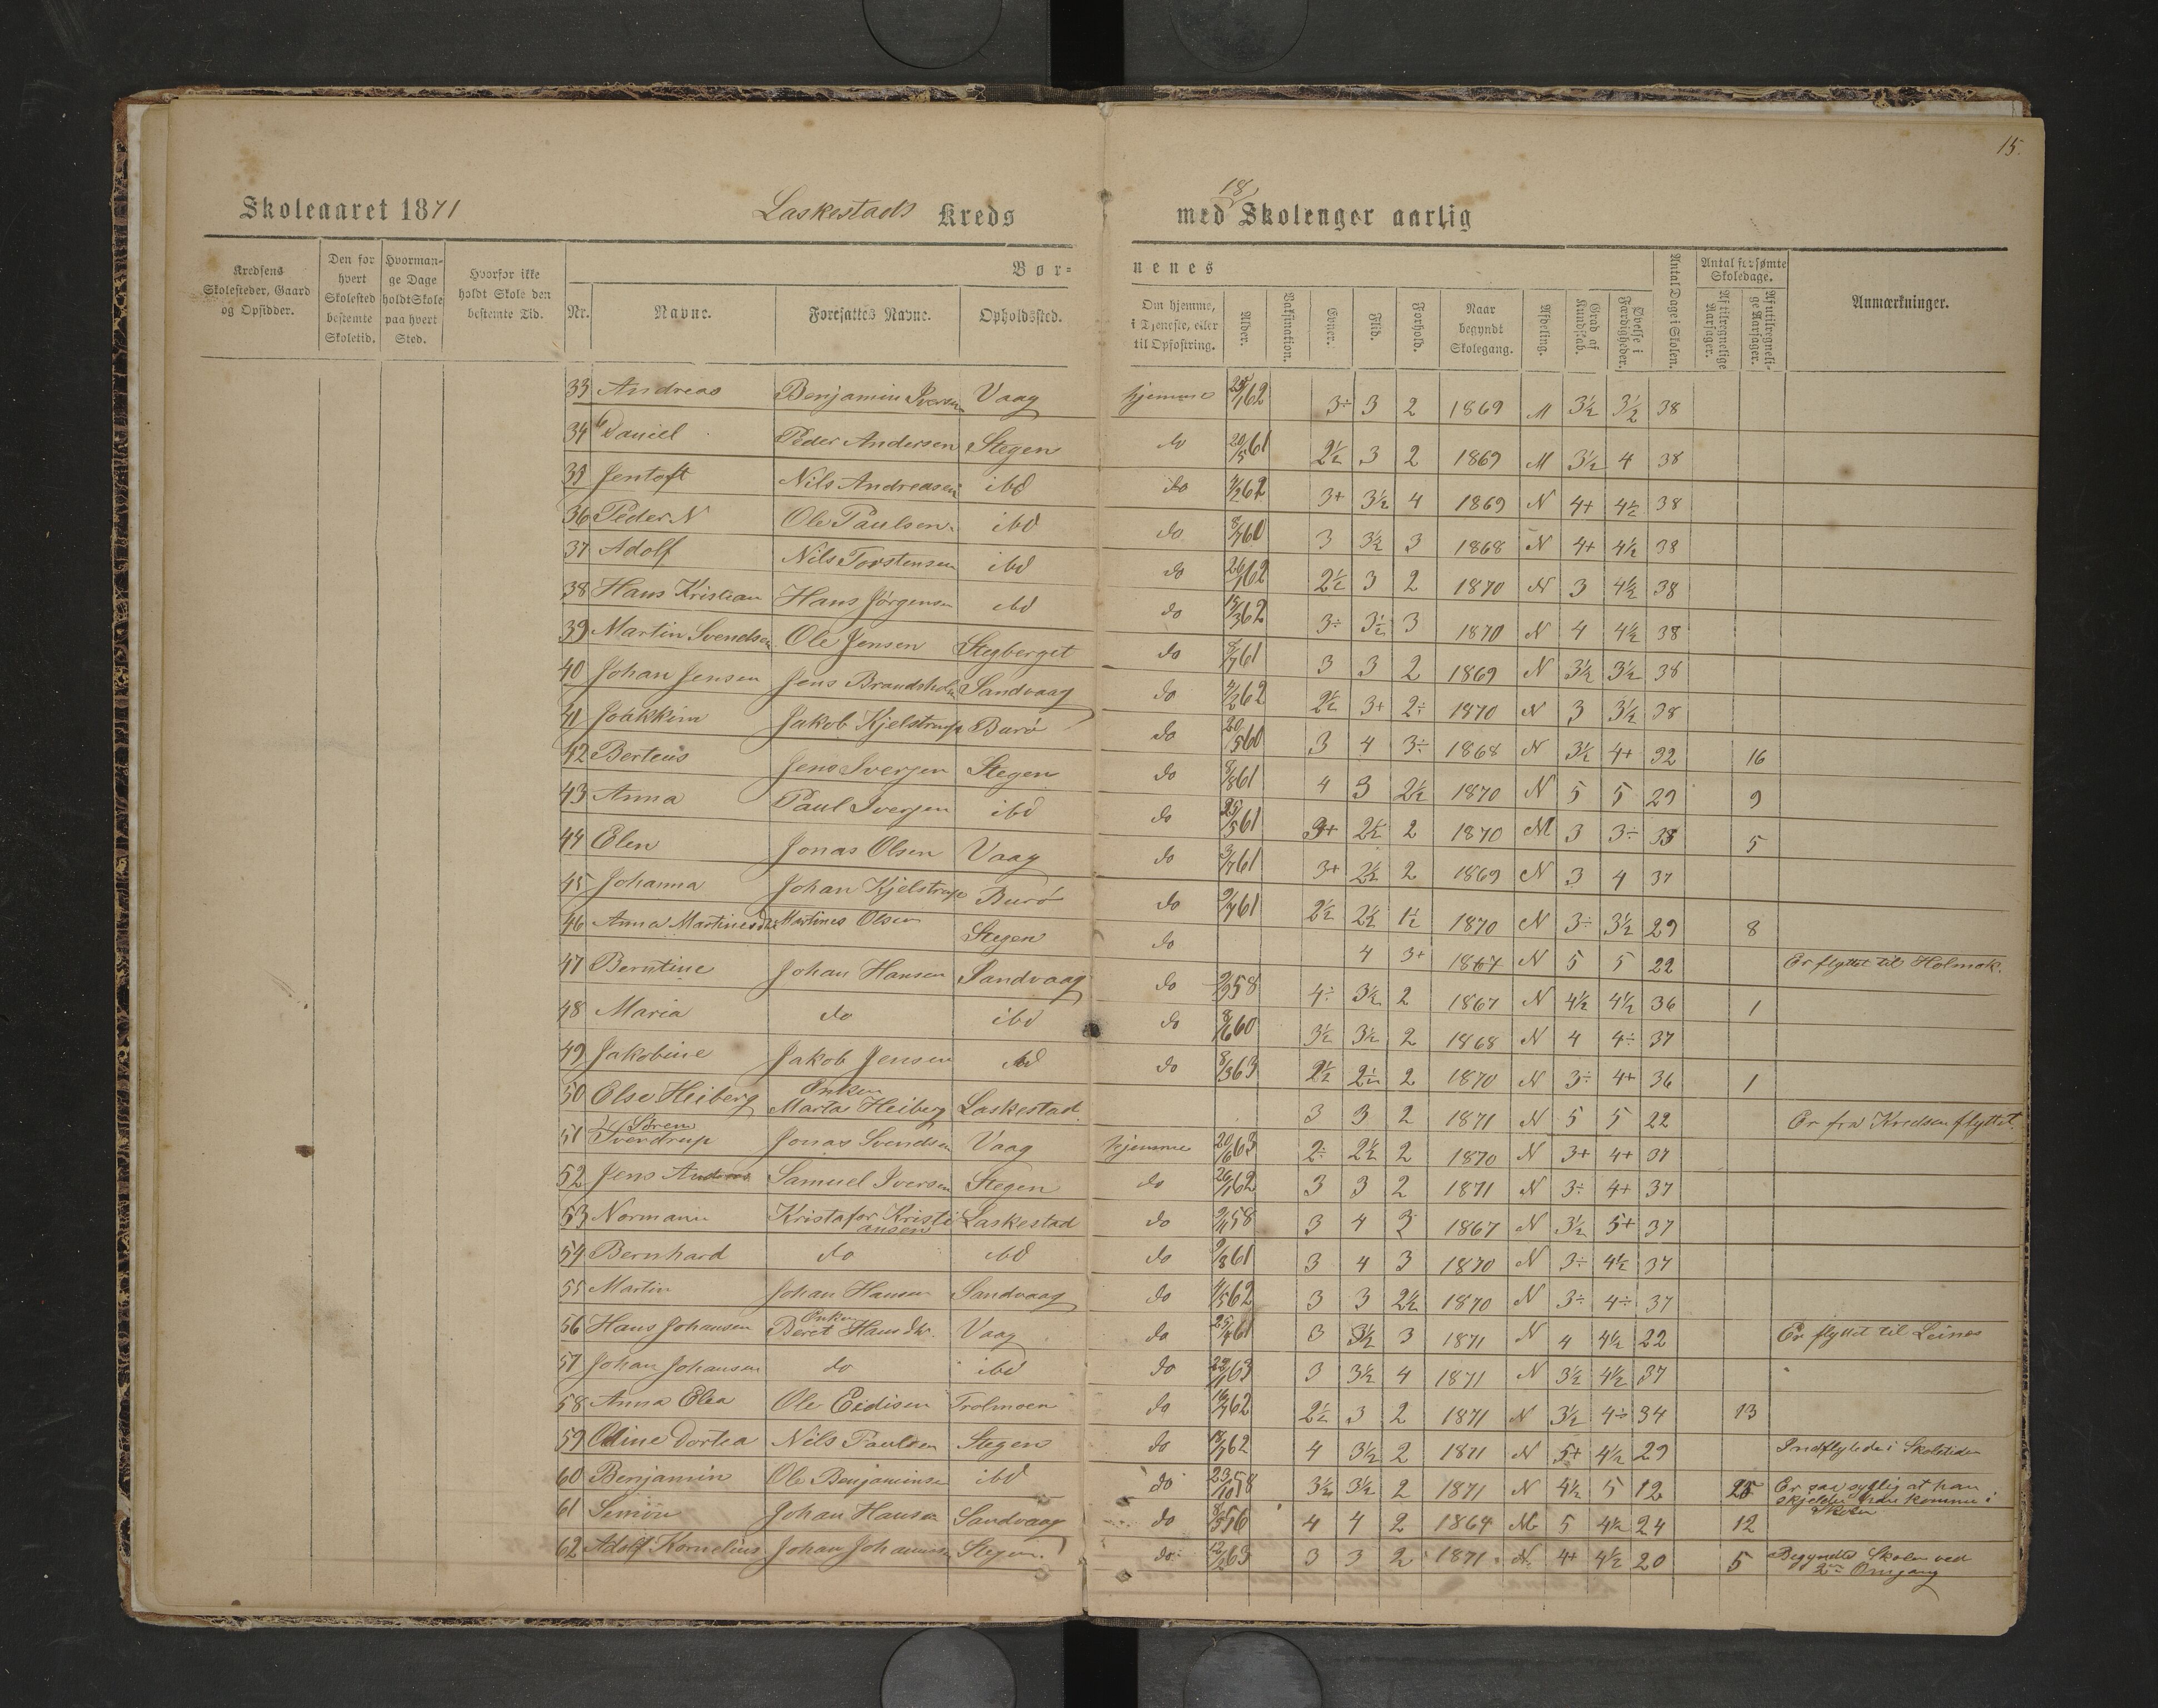 15.
Skoleaaret 1871 Laskestads Kreds med 18 Skolenger aarlig
Kredsens Skolesteder, Gaard og Opsidder.
Den for hvert Skolested bestemte Skoletid.
Hvormange Dage holdt Skole paa hvert Sted.
Hvorfor ikke holdt Skole den bestemte Tid.
Børnenes
Nr. Navne. Foresattes Navne. Opholdssted.
Om hjemme, i Tjeneste, eller til Opfostring.
Alder. Vaksination. Evner. Flid. Forhold.
Naar begyndt Skolegang.
Afdeling. Grad af Kundskab. Øvelse i Færdigheder.
Antal Dage i Skolen.
Antal forsømte Skoledage.
Af tilregnelige Aarsager. Af utilregnelige Aarsager.
Anmærkninger.
33 Andreas Benjamin Iversen Vaag hjemme 62 3÷ 3 2 1869 M 3½ 3½ 38
34 Daniel Peder Andersen Stegen do 20/5 61 2½ 3 2 1869 M 3½ 4 38
35 Jentoft Nils Andreasen ibd do 62 3+ 3½ 4 1869 N 4+ 4½ 38
36 Peder N Ole Paulsen ibd do 60 3 3½ 3 1868 N 4+ 4½ 38
37 Adolf Nils Torstensen ibd do 26/1 62 2½ 3 2 1870 N 3 4½ 38
38 Hans Kristian Hans Jörgensen ibd do 62 3÷ 3½ 3 1870 N 4 4½ 38
39 Martin Svendsen Ole Jensen Stegberget do 61 3 3 2 1869 N 3½ 3½ 38
40 Johan Jensen Jens Brandsholm Sandvaag do 62 2½ 3+ 2÷ 1870 N 3 3½ 38
41 Joakkim Jakob Kjelstrup Burö do 20/5 60 3 4 3÷ 1868 N 3½ 4+ 32 16
42 Berteus Jens Iversen Stegen do 8/8 61 4 3 2½ 1870 N 5 5 29 9
43 Anna Paul Iversen ibd do 25/5 61 3+ 2½ 2 1870 M 3 3÷ 33 5
44 Elen Jonas Olsen Vaag do 3/7 61 3+ 2½ 2 1869 N 3 4 37
45 Johanna Johan Kjelstrup Burö do 9/7 61 2½ 2½ 1½ 1870 N 3÷ 3½ 29 8
46 Anna Martinesdtr Martines Olsen Stegen do 4 3+ 1867 N 5 5 22 Er flyttet til Holmak.
47 Berntine Johan Hansen Sandvaag do 58 4÷ 3½ 2 1867 N 4½ 4½ 36 1
48 Maria do ibd do 8/6 60 3½ 3½ 2 1868 N 4 4÷ 37
49 Jakobine Jakob Jensen ibd do 8/3 63 2½ 2½ 2 1870 N 3÷ 4+ 36 1
50 Else Heiberg Enken Marta Heiberg Laskestad 3 3 2 1871 N 5 5 22 Er fra Kredsen flyttet.
51 Sören Sverdrup Jonas Svendsen Vaag hjemme 20/6 63 2÷ 2½ 2 1870 N 3+ 4+ 37
52 Jens Andreas Samuel Iversen Stegen do 26/1 62 3 3 2 1871 N 3÷ 4+ 37
53 Normann Kristafor Kristiansen Laskestad do 58 3 4 3 1867 N 3½ 5+ 37
54 Bernhard do ibd do 9/8 61 3 4 3 1870 N 3÷ 4½ 37
55 Martin Johan Hansen Sandvaag do 4/5 62 3 3 2½ 1870 N 3÷ 4÷ 37
56 Hans Johansen Enken Beret Hansdtr. Vaag do 61 3 3½ 3 1871 N 4 4½ 22 Er flyttet til Leines
57 Johan Johansen do ibd do 63 3 3½ 4 1871 N 3½ 4½ 37
58 Anna Elea Ole Eidisen Trolmoen do 62 2½ 3 2 1871 N 3½ 4÷ 34 13
59 Oline Dortea Nils Paulsen Stegen do 62 4 3½ 2 1871 N 5+ 4½ 29 Indflyttede i Skoletiden
60 Benjamin Ole Benjaminsen ibd do 23/10 58 3½ 3½ 2 1871 N 4½ 5 12 25 Er saa syglig at han
skjelden kan komme i
Skolen
61 Simon Johan Hansen Sandvaag do 8/5 56 4 4 2 1864 M 5 4½ 24 12
62 Adolf Kornelius Johan Johannesen Stegen do 12/2 63 3 3 2 1871 N 4+ 4½ 20 5 Begyndte Skolen ved
2den Omgang